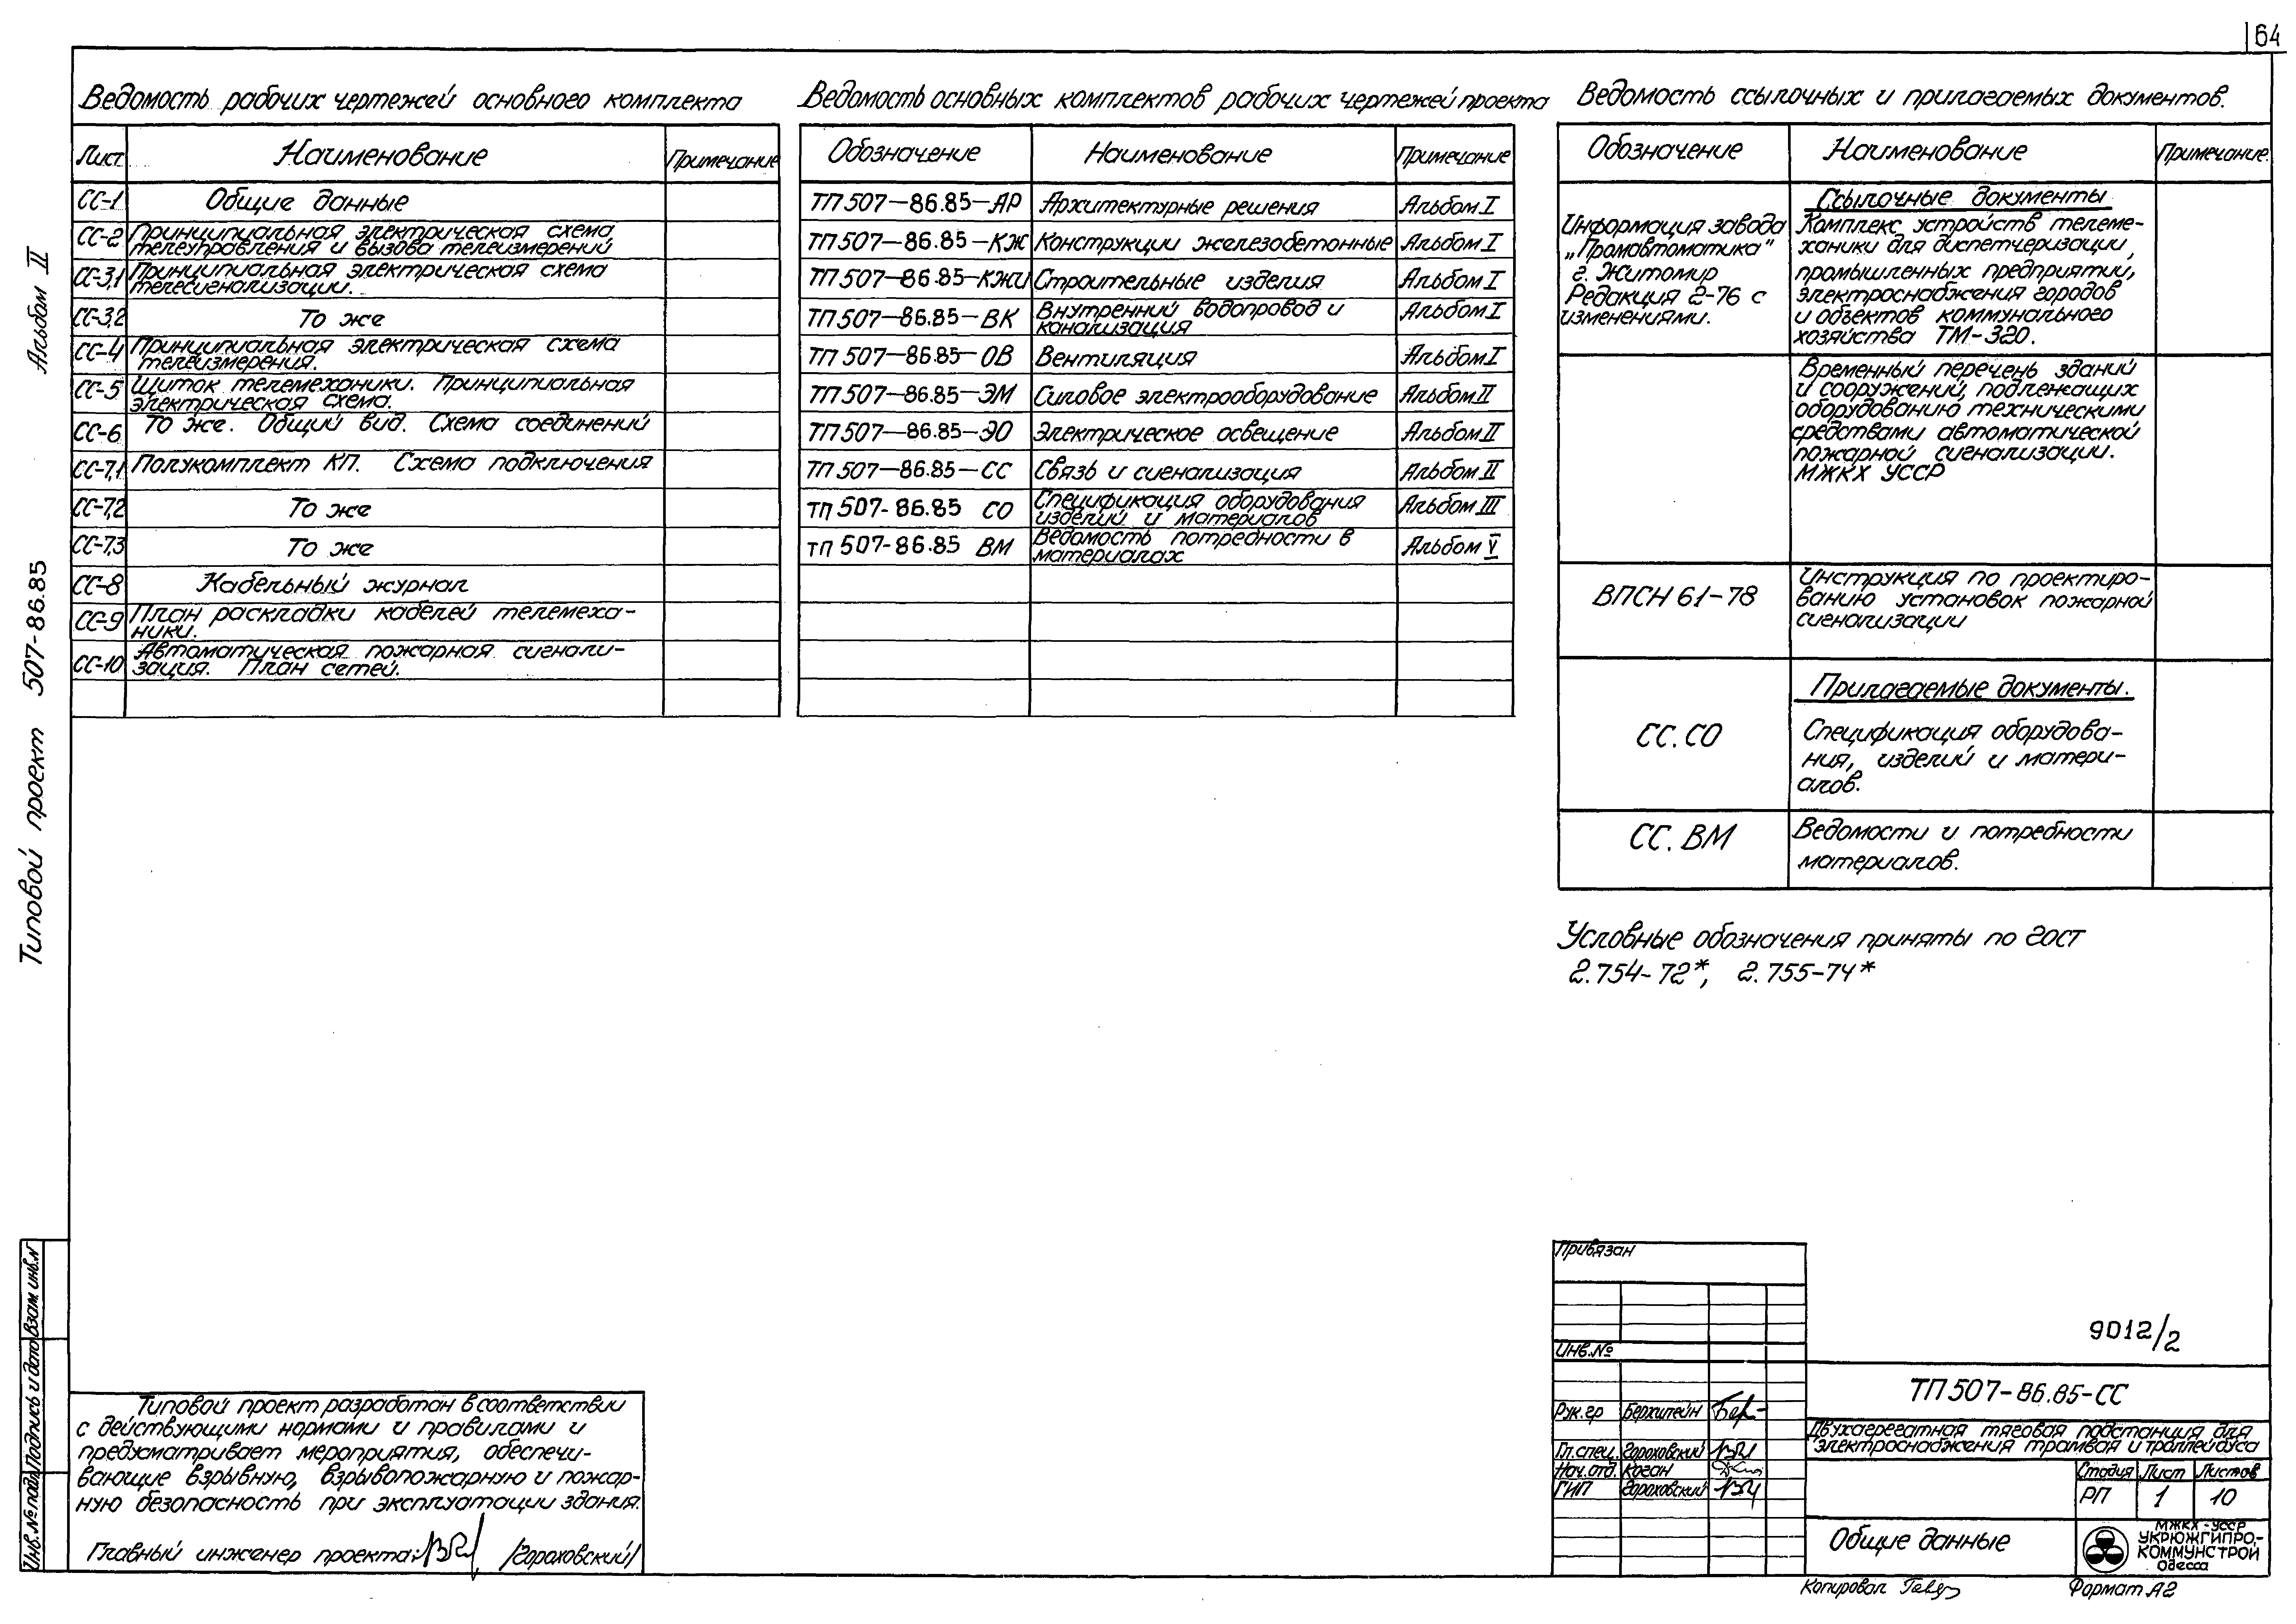 64
Ведомость рабочих чертежей основного комплекта
Лист Наименование Примечание
СС-1 Общие данные
СС-2 Принципиальная электрическая схема
телеуправления и вызова телеизмерений
СС-3,1 Принципиальная электрическая схема
телесигнализации.
СС-3,2 То же
СС-4 Принципиальная электрическая схема
телеизмерения.
СС-5 Щиток телемеханики. Принципиальная
электрическая схема.
СС-6 То же. Общий вид. Схема соединений
СС-7,1 Полукомплект КП. Схема подключения
СС-7,2 То же
СС-7,3 То же
СС-8 Кабельный журнал
СС-9 План раскладки кабелей телемеха-
ники.
СС-10 Автоматическая пожарная сигнали-
зация. План сетей.
Ведомость основных комплектов рабочих чертежей проекта
Обозначение Наименование Примечание
ТП 507-86.85-АР Архитектурные решения Альбом I
ТП 507-86.85-КЖ Конструкции железобетонные Альбом I
ТП 507-86.85-КЖИ Строительные изделия Альбом I
ТП 507-86.85-ВК Внутренний водопровод и
канализация Альбом I
ТП 507-86.85-ОВ Вентиляция Альбом I
ТП 507-86.85-ЭМ Силовое электрооборудование Альбом II
ТП 507-86.85-ЭО Электрическое освещение Альбом II
ТП 507-86.85-СС Связь и сигнализация Альбом II
ТП 507-86.85 СО Спецификация оборудования
изделий и материалов Альбом III
ТП 507-86.85 ВМ Ведомость потребности в
материалах Альбом V
Ведомость ссылочных и прилагаемых документов.
Обозначение Наименование Примечание
Ссылочные документы
Информация завода
„Промавтоматика"
г. Житомир
Редакция 2-76 с
изменениями.
Комплекс устройств телеме-
ханики для диспетчеризации,
промышленных предприятий,
электроснабжения городов
и объектов коммунального
хозяйства ТМ-320.
Временный перечень зданий
и сооружений, подлежащих
оборудованию техническими
средствами автоматической
пожарной сигнализации.
МЖКХ УССР
ВПСН 61-78
Инструкция по проектиро-
ванию установок пожарной
сигнализации
Прилагаемые документы.
СС.СО
Спецификация оборудова-
ния, изделий и матери-
алов.
СС. ВМ
Ведомости и потребности
материалов.
Условные обозначения приняты по гост
2.754-72*, 2.755-74*
Альбом II
Типовой проект 507-86.85
Взам. инв.№
Подпись и дата
Инв.№ подл
Типовой проект разработан в соответствии
с действующими нормами и правилами и
предусматривает мероприятия, обеспечи-
вающие взрывную, взрывопожарную и пожар-
ную безопасность при эксплуатации здания.
Главный инженер проекта: /Гороховский/
Привязан
Инв.№
Рук.гр Берхштейн
Гл.спец. Гороховский
Нач.отд. Коган
ГИП Гороховский
9012/2
ТП 507-86.85-СС
Двухагрегатная тяговая подстанция для
электроснабжения трамвая и троллейбуса
Стадия Лист Листов
РП 1 10
Общие данные
МЖКХ-УССР
УКРЮЖГИПРО-
КОММУНСТРОЙ
Одесса
Копировал
Формат А2